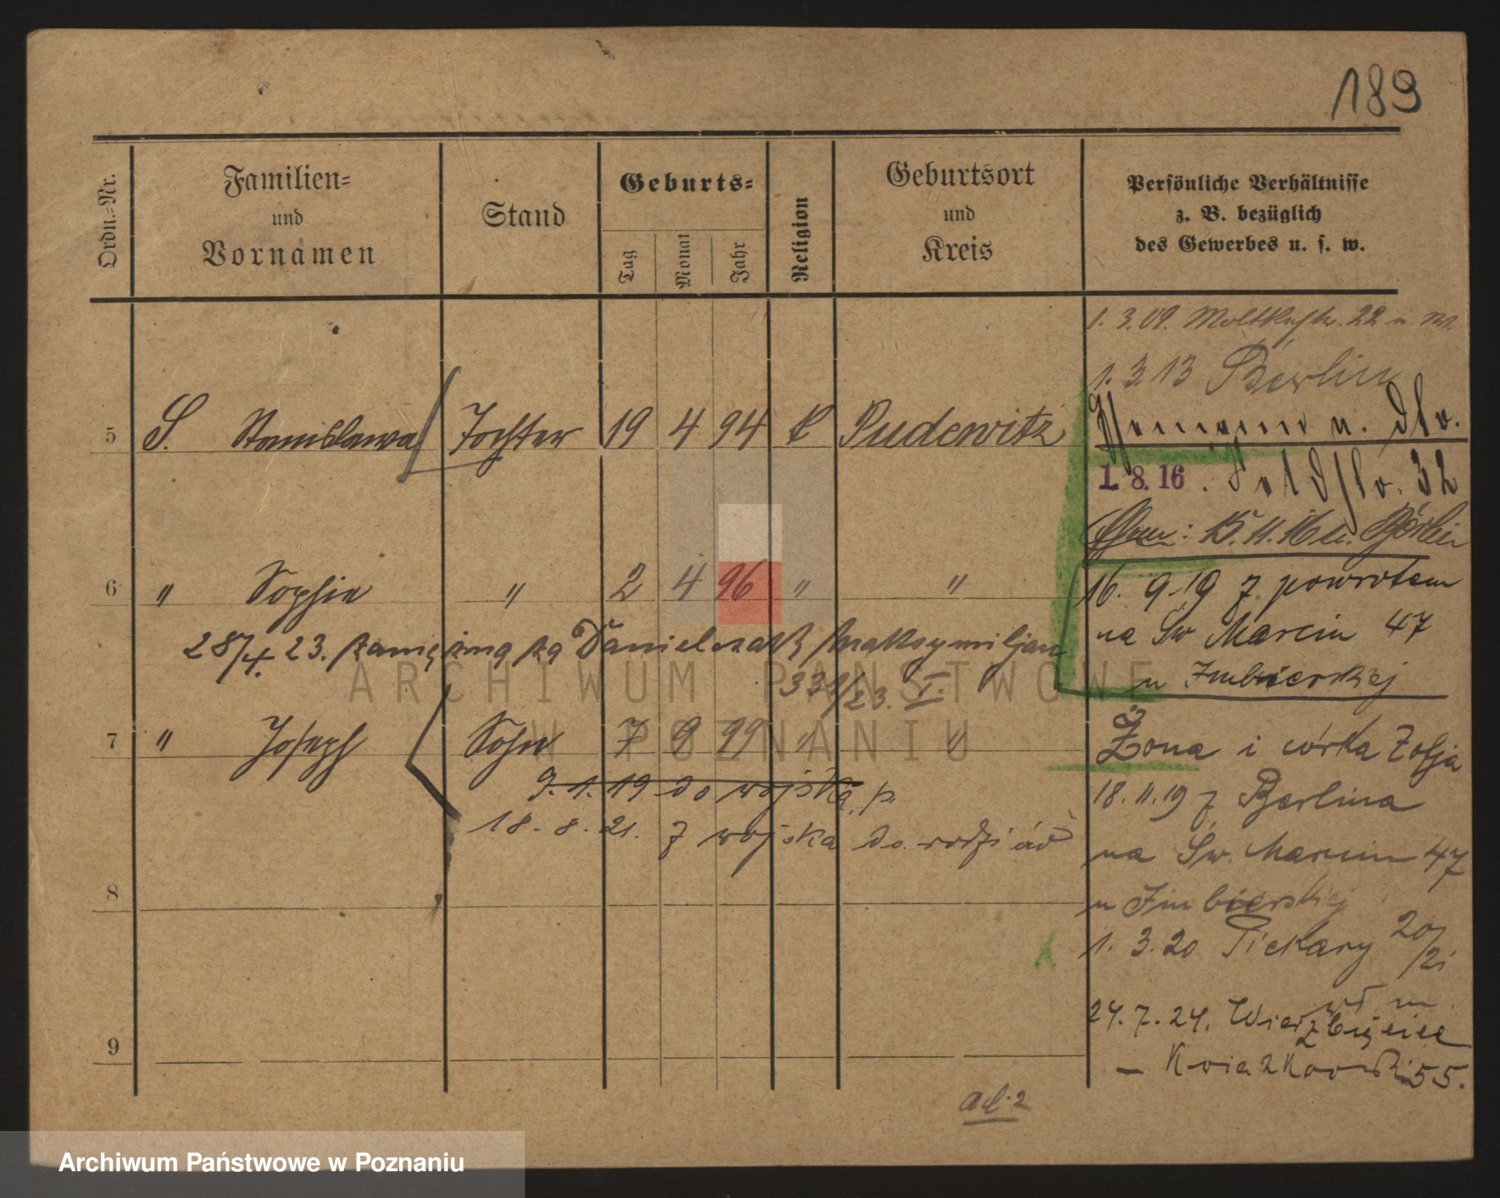 189
Ordn.-Nr.
Familien-
und
Vornamen
Stand
Geburts-
Tag
Monat
Jahr
Religion
Geburtsort
und
Kreis
Persönliche Verhältnisse
z. B. bezüglich
des Gewerbes u. s. w.
1. 3. 09. Moltkestr. 22
1. 3 13 Berlin
5 S. Stanislawa Tochter 19 4 94 k Pudewitz
1. 8. 16 . 32
15. 11. 16 Berlin
6 " Sophie " 2 4 96 " "
16. 9. 19 z powrotem
na Św Marcin 47
u Imbierskiej
28/4. 23. Danielczak Maksymiljan
331/23. V.
7 " Joseph Sohn 7 9 99 " "
9. 1. 19 do wojska p.
18. 8. 21. z wojska do rodziców
Żona i córka Zofja
18. 11. 19 z Berlina
na Św. Marcin 47
u Imbierskiej
1. 3. 20 Piekary 20/21
8
24. 7. 24. Wierzbięcice
55.
9
ad. 2
ARCHIWUM PAŃSTWOWE
W POZNANIU
Archiwum Państwowe w Poznaniu